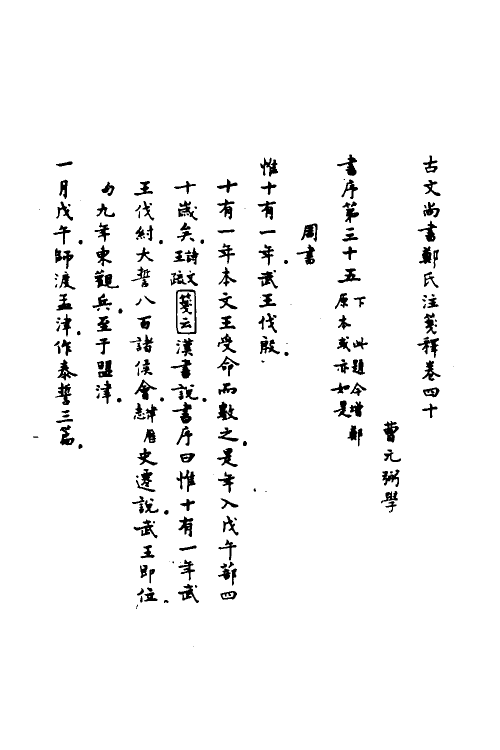 古文尚書鄭氏注箋釋卷四十
曹元弼學
書序第三十五下此題今增鄭原本或亦如是
周書
惟十有一年武王伐殷。
十有一年本文王受命而數之。是年入戊午蔀四
十歲矣。詩文王疏箋云漢書說。書序曰惟十有一年武
王伐紂大誓八百諸侯會。律曆志史遷說。武王即位
為九年東觀兵。至于盟津。
一月戊午。師渡孟津。作泰誓三篇。